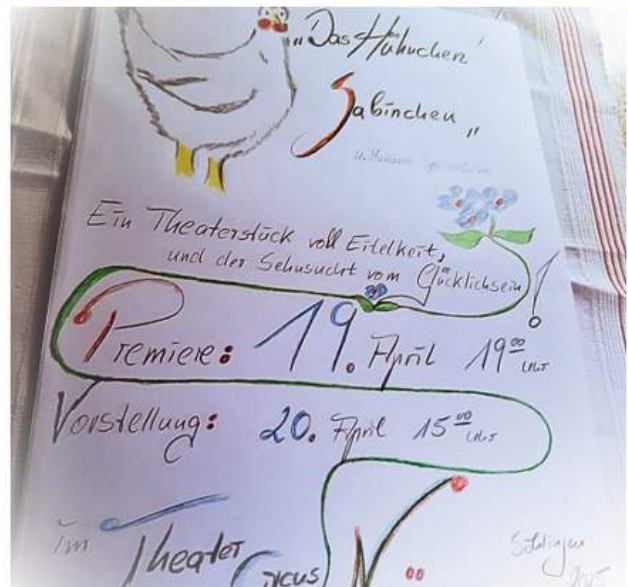 „Das Hühnchen
Sabinchen"
Ein Theaterstück voll Eitelkeit,
und der Sehnsucht vom Glücklichsein!
Premiere: 19. April 19⁰⁰ Uhr
Vorstellung: 20. April 15⁰⁰ Uhr
im Theater
Circus